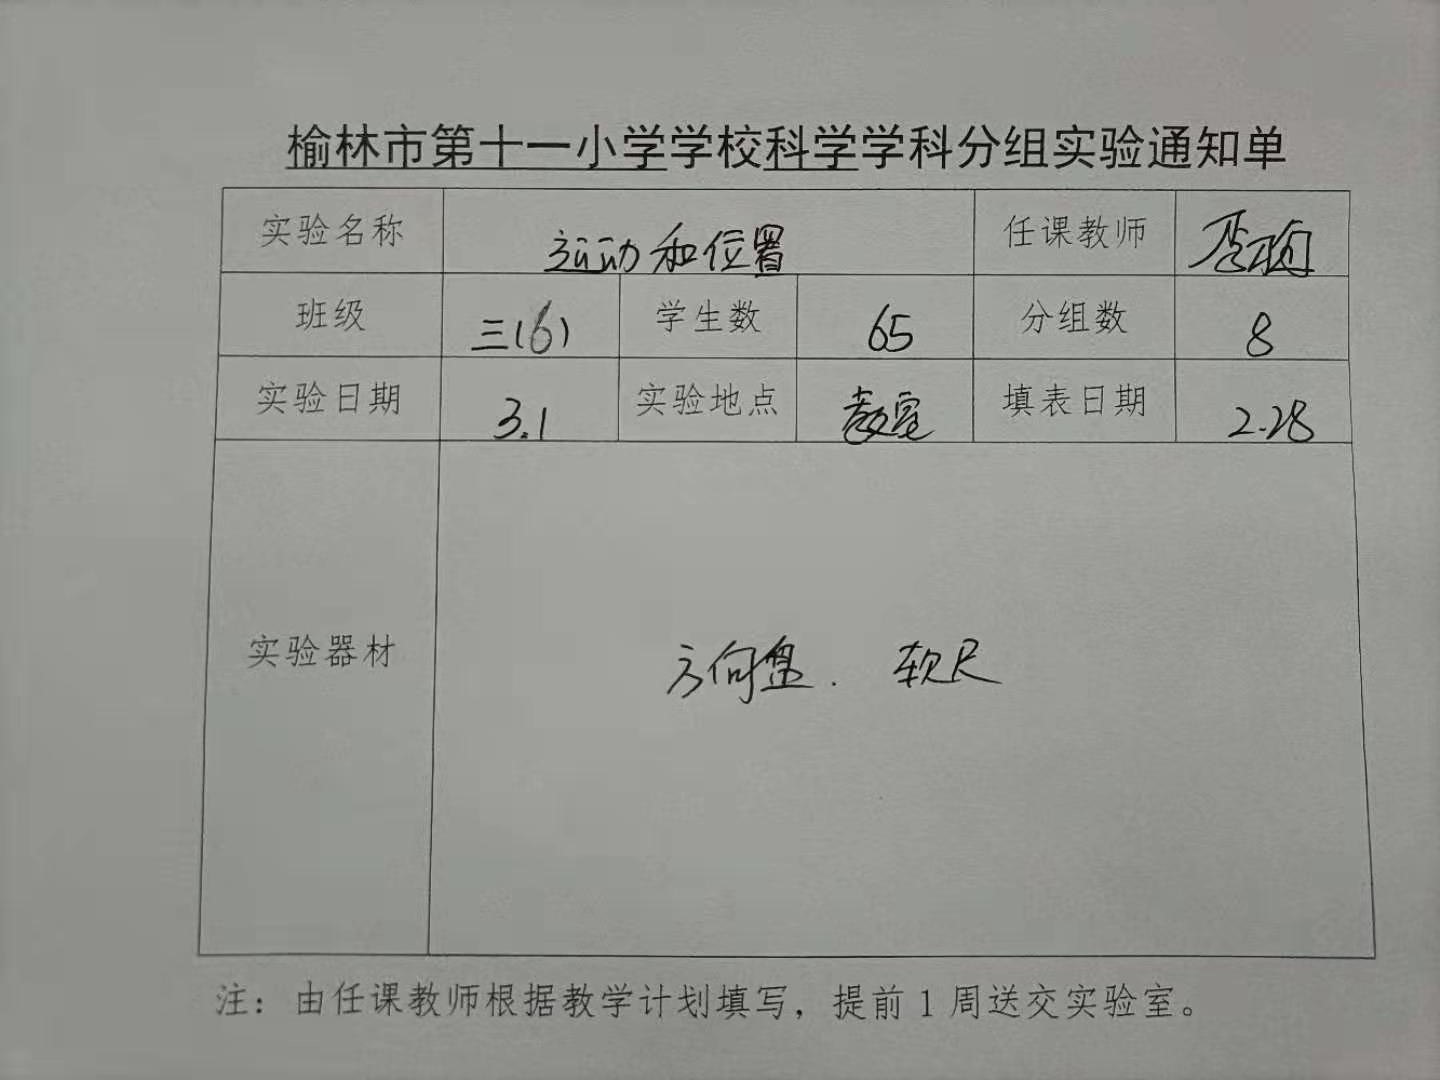 榆林市第十一小学学校科学学科分组实验通知单
实验名称 运动和位置 任课教师 李梅
班级 三(6) 学生数 65 分组数 8
实验日期 3.1 实验地点 教室 填表日期 2.28
实验器材 方向盘. 软尺
注：由任课教师根据教学计划填写，提前1周送交实验室。